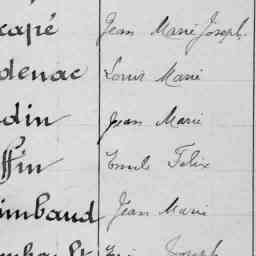 capé Jean Marie Joseph.
denac Louis Marie
din Jean Marie
ffin Emile Felix
imbaud Jean Marie
Joseph